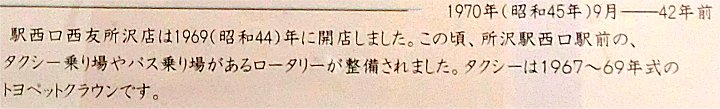 1970年(昭和45年)9月――42年前
駅西口西友所沢店は1969(昭和44)年に開店しました。この頃、所沢駅西口駅前の、
タクシー乗り場やバス乗り場があるロータリーが整備されました。タクシーは1967〜69年式の
トヨペットクラウンです。